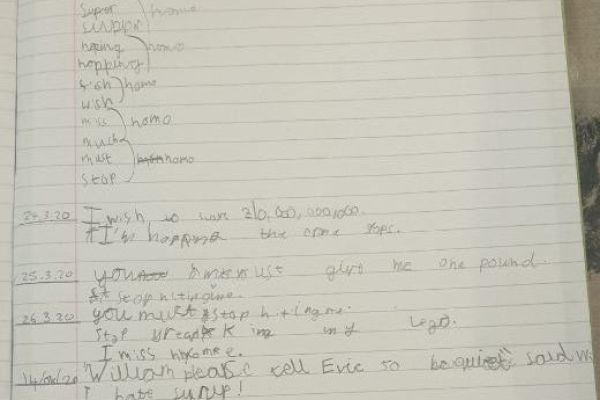 super homo
supper
hoping homo
hopping
fish homo
wish
miss homo
much
must homo
stop
24.3.20 I wish to win 210,000,000,000.
I'm hopping the
25.3.20 you must give me one pound.
stop
26.3.20 you must stop hitingme.
stop in my Lego.
I miss
William please tell Evie to be quiet said
I hate syrup!